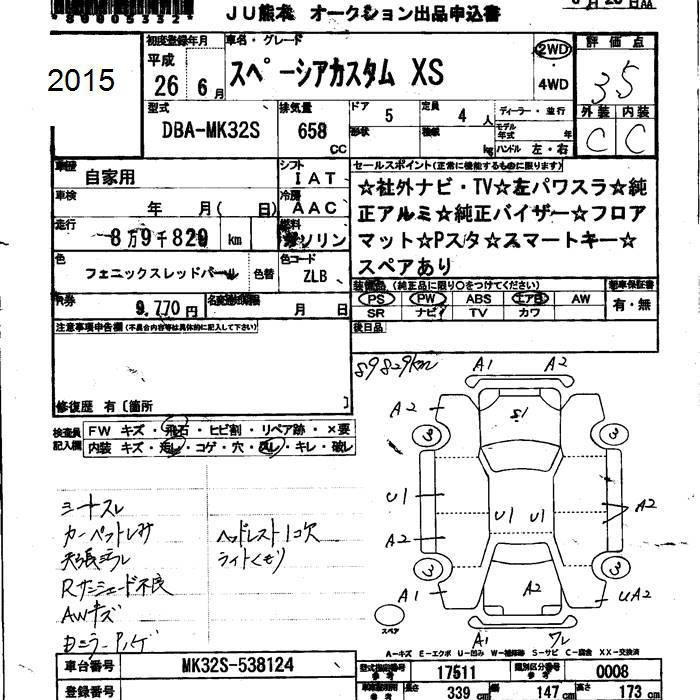 *89005332*
JU熊本 オークション出品申込書
2015
初度登録年月
平成
26 年 6 月
車名・グレード
スペーシアカスタム XS
2WD
・
4WD
評価点
3.5
型式
DBA-MK32S
排気量
658 CC
ドア 5
形状
定員 4 人
積載 kg
ディーラー・並行
モデル年式 年
ハンドル 左・右
外装 内装
C C
車歴
自家用
シフト
IAT
セールスポイント(正常に機能するものに限ります)
☆社外ナビ・TV☆左パワスラ☆純
正アルミ☆純正バイザー☆フロア
マット☆Pスタ☆スマートキー☆
スペアあり
車検
年 月( 日)
冷房
AAC
走行
8万9千829 km
燃料
ガソリン
色
フェニックスレッドパール
色替
色コード
ZLB
装備品 (純正品に限り○をつけてください)
PS PW ABS エアB AW
SR ナビ TV カワ
新車保証書
有・無
R券
9,770円
名変期限
月 日
後日品
注意事項申告欄(不具合内容等は具体的に記入して下さい)
修復歴 有〔箇所 〕
検査員
記入欄
FW キズ・飛石・ヒビ割・リペア跡・×要
内装 キズ・汚レ・コゲ・穴・スレ・キレ・破レ
89829km
A1 A2
A2 S1
3 3
U1 U1 U1 A2
A2
3 3
A1 A2 UA2
スペア
A1 ワレ
シートスレ
カーペットしみ
天張ヨゴレ
Rサンシェード不良
AWキズ
Dミラーハゲ
ヘッドレスト1コ欠
ライトくもり
A-キズ E-エクボ U-凹み W-補修跡 S-サビ C-腐食 XX-交換済
車台番号 MK32S-538124
型式指定番号 17511
類別区分番号 0008
登録番号
長さ 339 cm
幅 147 cm
高さ 173 cm